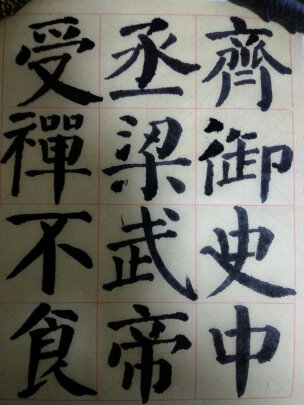 齊御史中
丞梁武帝
受禪不食